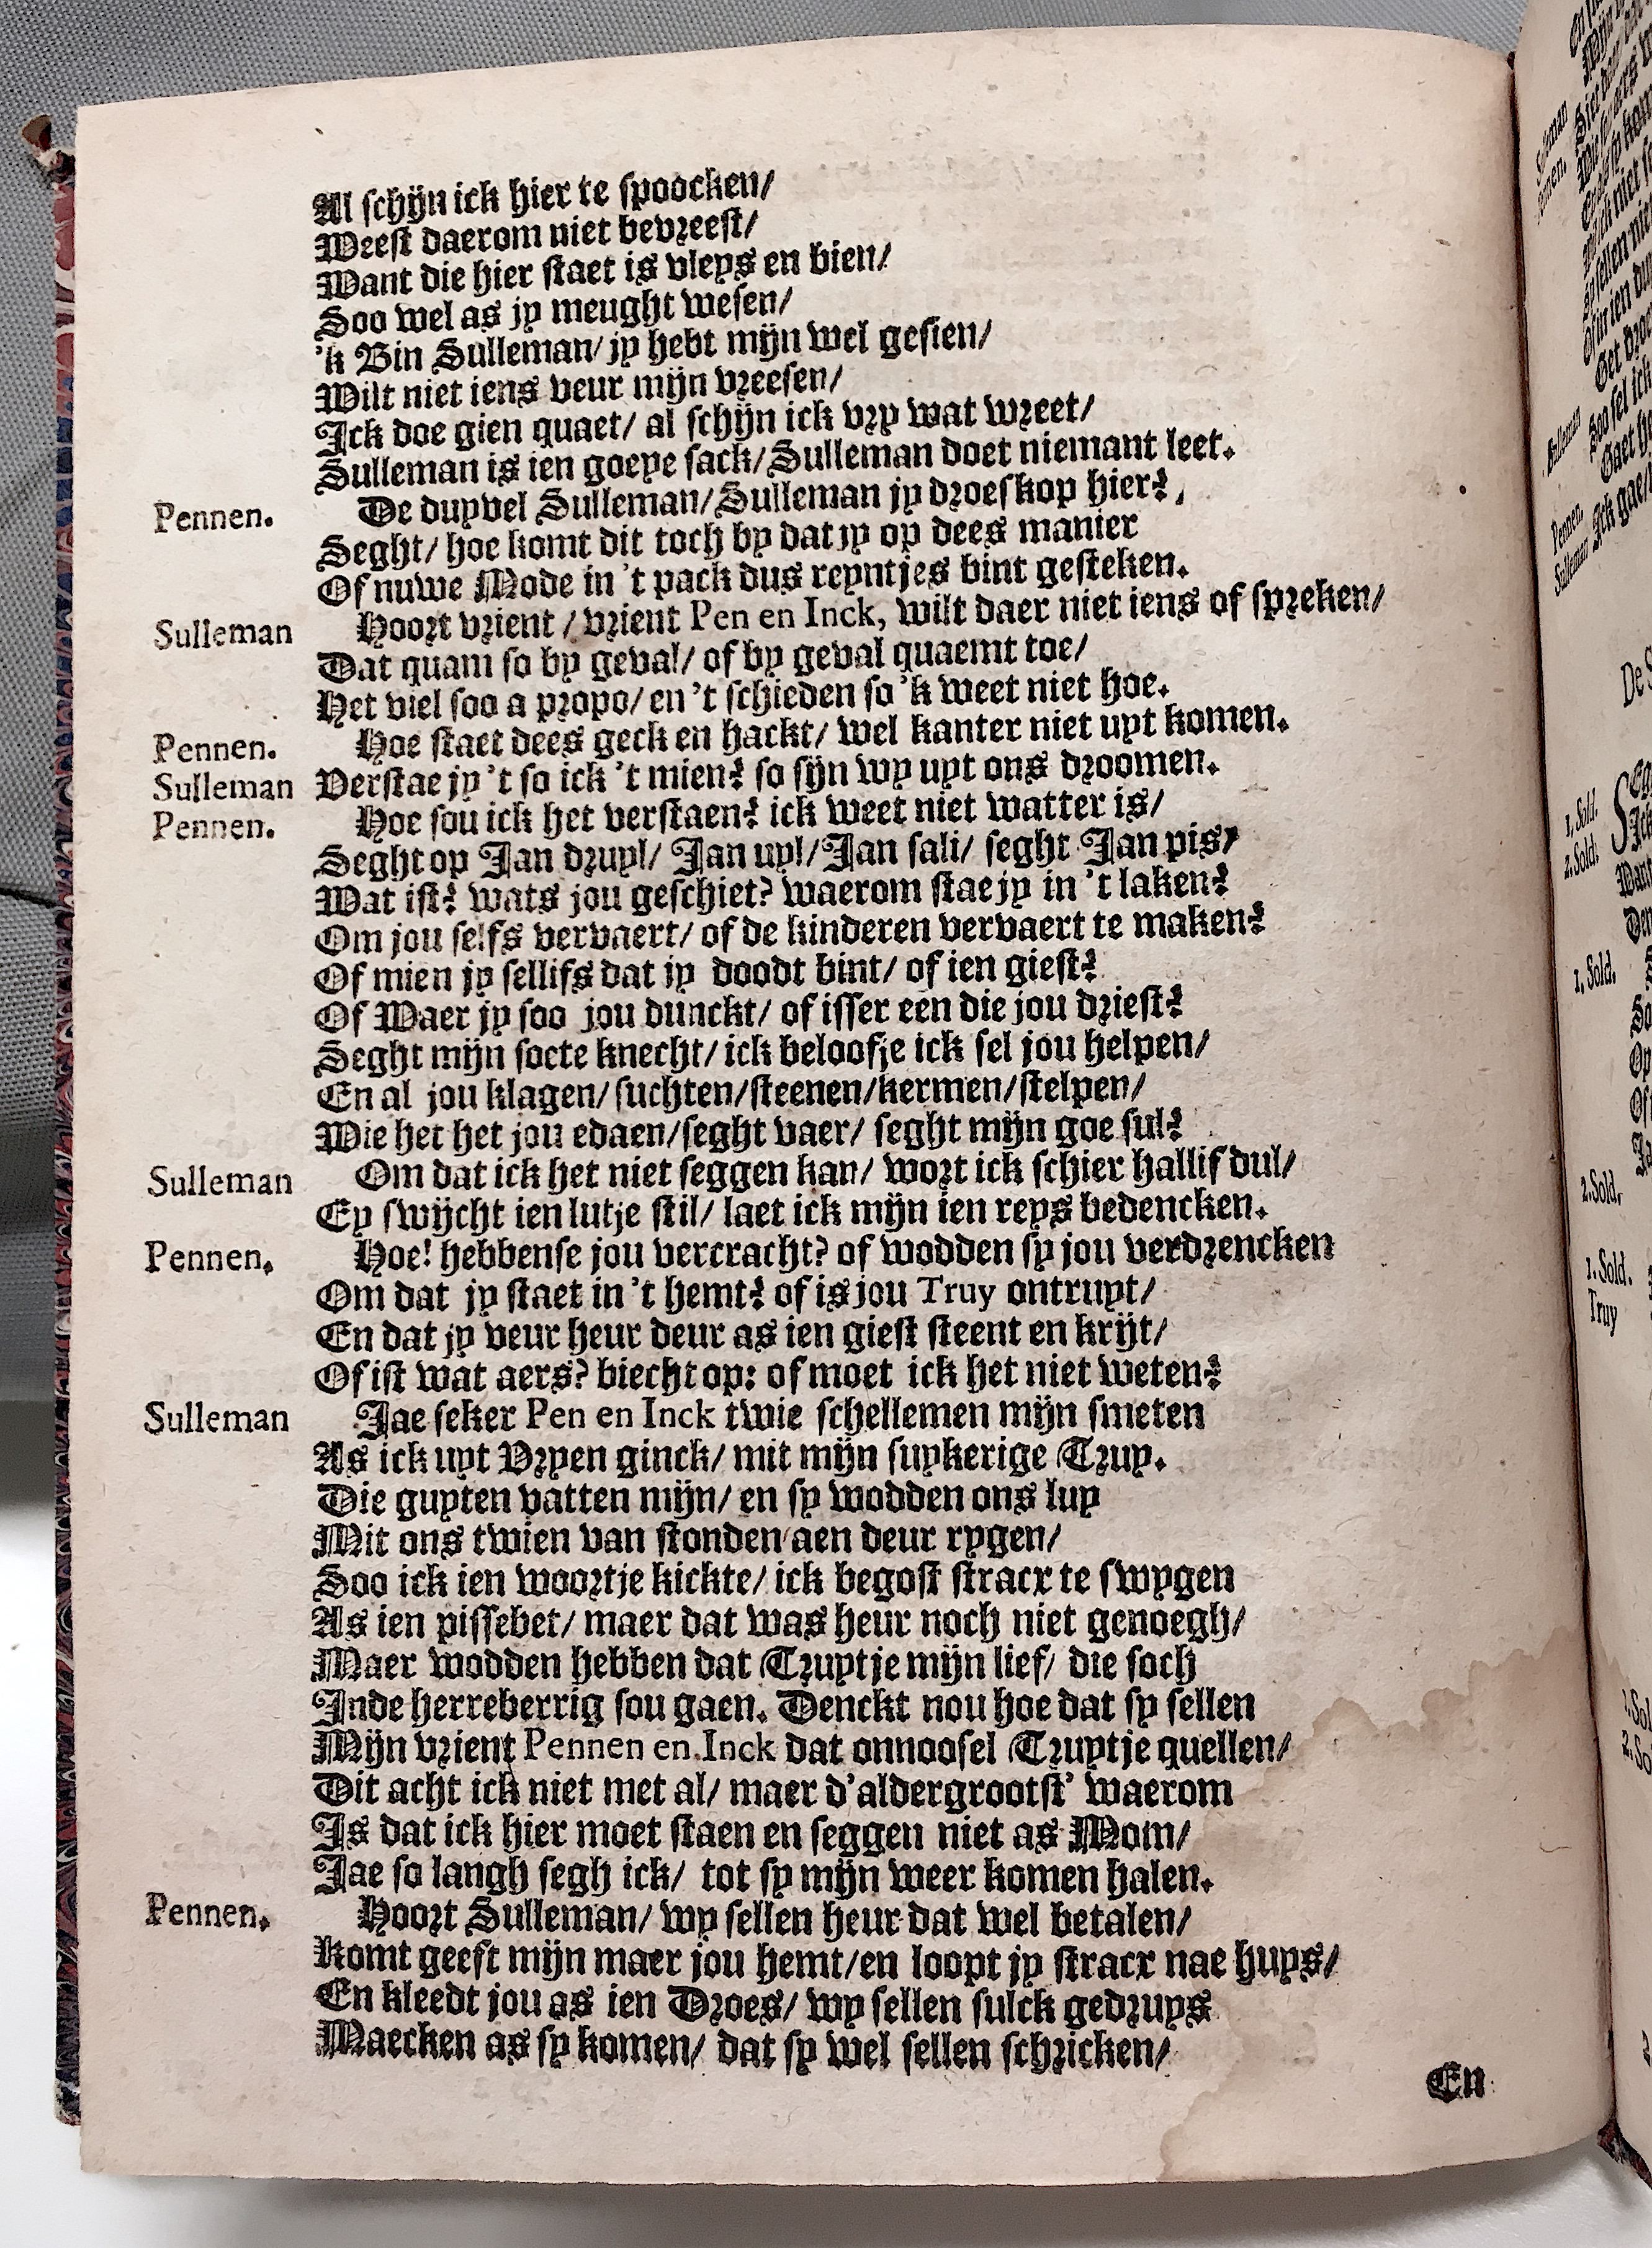 Al schijn ick hier te spoocken/
Weest daerom niet bevreest/
Want die hier staet is vleys en bien/
Soo wel as jy meught wesen/
'k Bin Sulleman/ jy hebt mijn wel gesien/
Wilt niet iens veur mijn vreesen/
Ick doe gien quaet/ al schijn ick vry wat wreet/
Sulleman is ien goeye sack/ Sulleman doet niemant leet.
Pennen. De duyvel Sulleman/ Sulleman jy droeskop hier?
Seght/ hoe komt dit toch by dat jy op dees manier
Of nuwe Mode in 't pack dus reyntjes bint gesteken.
Sulleman Hoort vrient / vrient Pen en Inck, wilt daer niet iens of spreken/
Dat quam so by geval/ of by geval quaemt toe/
Het viel soo a propo/ en 't schieden so 'k weet niet hoe.
Pennen. Hoe staet dees geck en hackt/ wel kanter niet uyt komen.
Sulleman Verstae jy 't so ick 't mien? so sijn wy uyt ons droomen.
Pennen. Hoe sou ick het verstaen? ick weet niet watter is/
Seght op Jan druyl/ Jan uyl/ Jan sali/ seght Jan pis/
Wat ist? wats jou geschiet? waerom stae jy in 't laken?
Om jou selfs vervaert/ of de kinderen vervaert te maken?
Of mien jy sellifs dat jy doodt bint/ of ien giest?
Of Waer jy soo jou dunckt/ of isser een die jou driest?
Seght mijn soete knecht/ ick beloofje ick sel jou helpen/
En al jou klagen/ suchten/ steenen/ kermen/ stelpen/
Wie het het jou edaen/ seght vaer/ seght mijn goe sul?
Sulleman Om dat ick het niet seggen kan/ wort ick schier hallif dul/
Ey swijcht ien lutje stil/ laet ick mijn ien reys bedencken.
Pennen. Hoe! hebbense jou vercracht? of wodden sy jou verdrencken
Om dat jy staet in 't hemt? of is jou Truy ontruyt/
En dat jy veur heur deur as ien giest steent en krijt/
Of ist wat aers? biecht op: of moet ick het niet weten?
Sulleman Jae seker Pen en Inck twie schellemen mijn smeten
As ick uyt Vryen ginck/ mit mijn suykerige Truy.
Die guyten vatten mijn/ en sy wodden ons luy
Mit ons twien van stonden aen deur rygen/
Soo ick ien woortje kickte/ ick begost stracx te swygen
As ien pissebet/ maer dat was heur noch niet genoegh/
Maer wodden hebben dat Truytje mijn lief/ die soch
Inde herreberrig sou gaen. Denckt nou hoe dat sy sellen
Mijn vrient Pennen en Inck dat onnoosel Truytje quellen/
Dit acht ick niet met al/ maer d'aldergrootst' waerom
Is dat ick hier moet staen en seggen niet as Mom/
Jae so langh segh ick/ tot sy mijn weer komen halen.
Pennen. Hoort Sulleman/ wy sellen heur dat wel betalen/
Komt geeft mijn maer jou hemt/ en loopt jy stracx nae huys/
En kleedt jou as ien Droes/ wy sellen sulck gedruys
Maecken as sy komen/ dat sy wel sellen schricken/
En
Sulleman
Pennen.
Sulleman
De S
1. Sold.
2. Sold:
1, Sold.
2.Sold,
1. Sold.
Truy